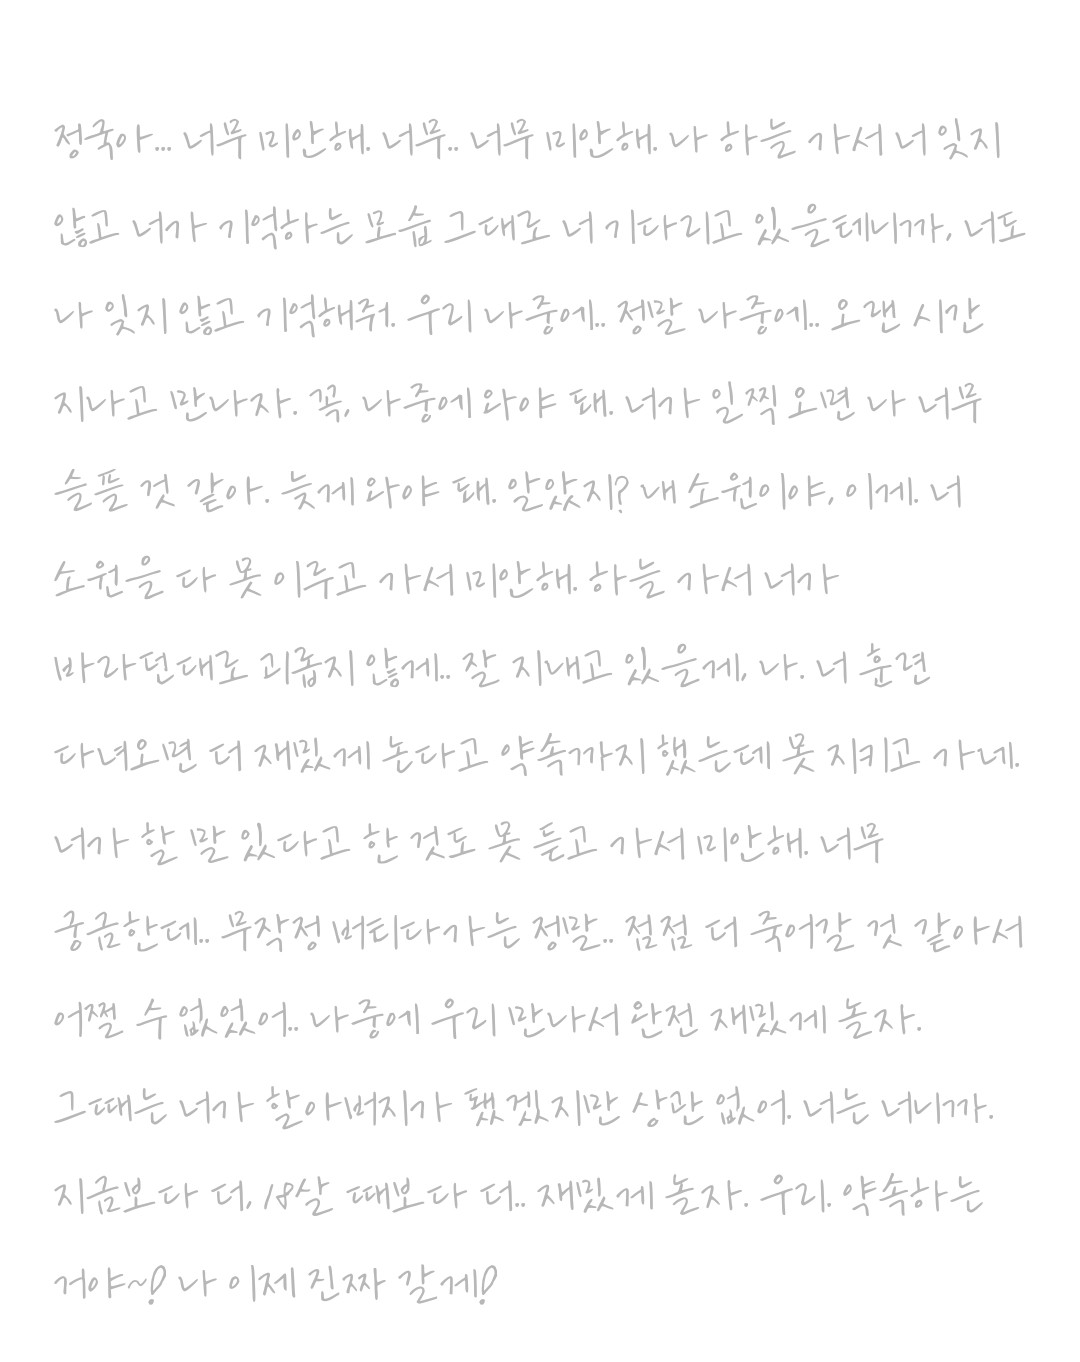 정국아... 너무 미안해. 너무.. 너무 미안해. 나 하늘 가서 너 잊지
않고 너가 기억하는 모습 그대로 너 기다리고 있을테니까, 너도
나 잊지 않고 기억해줘. 우리 나중에.. 정말 나중에.. 오랜 시간
지나고 만나자. 꼭, 나중에 와야 돼. 너가 일찍 오면 나 너무
슬플 것 같아. 늦게 와야 돼. 알았지? 내 소원이야, 이게. 너
소원을 다 못 이루고 가서 미안해. 하늘 가서 너가
바라던대로 괴롭지 않게.. 잘 지내고 있을게, 나. 너 훈련
다녀오면 더 재밌게 논다고 약속까지 했는데 못 지키고 가네.
너가 할 말 있다고 한 것도 못 듣고 가서 미안해. 너무
궁금한데.. 무작정 버티다가는 정말.. 점점 더 죽어갈 것 같아서
어쩔 수 없었어.. 나중에 우리 만나서 완전 재밌게 놀자.
그때는 너가 할아버지가 됐겠지만 상관 없어. 너는 너니까.
지금보다 더, 18살 때보다 더.. 재밌게 놀자. 우리. 약속하는
거야~! 나 이제 진짜 갈게!